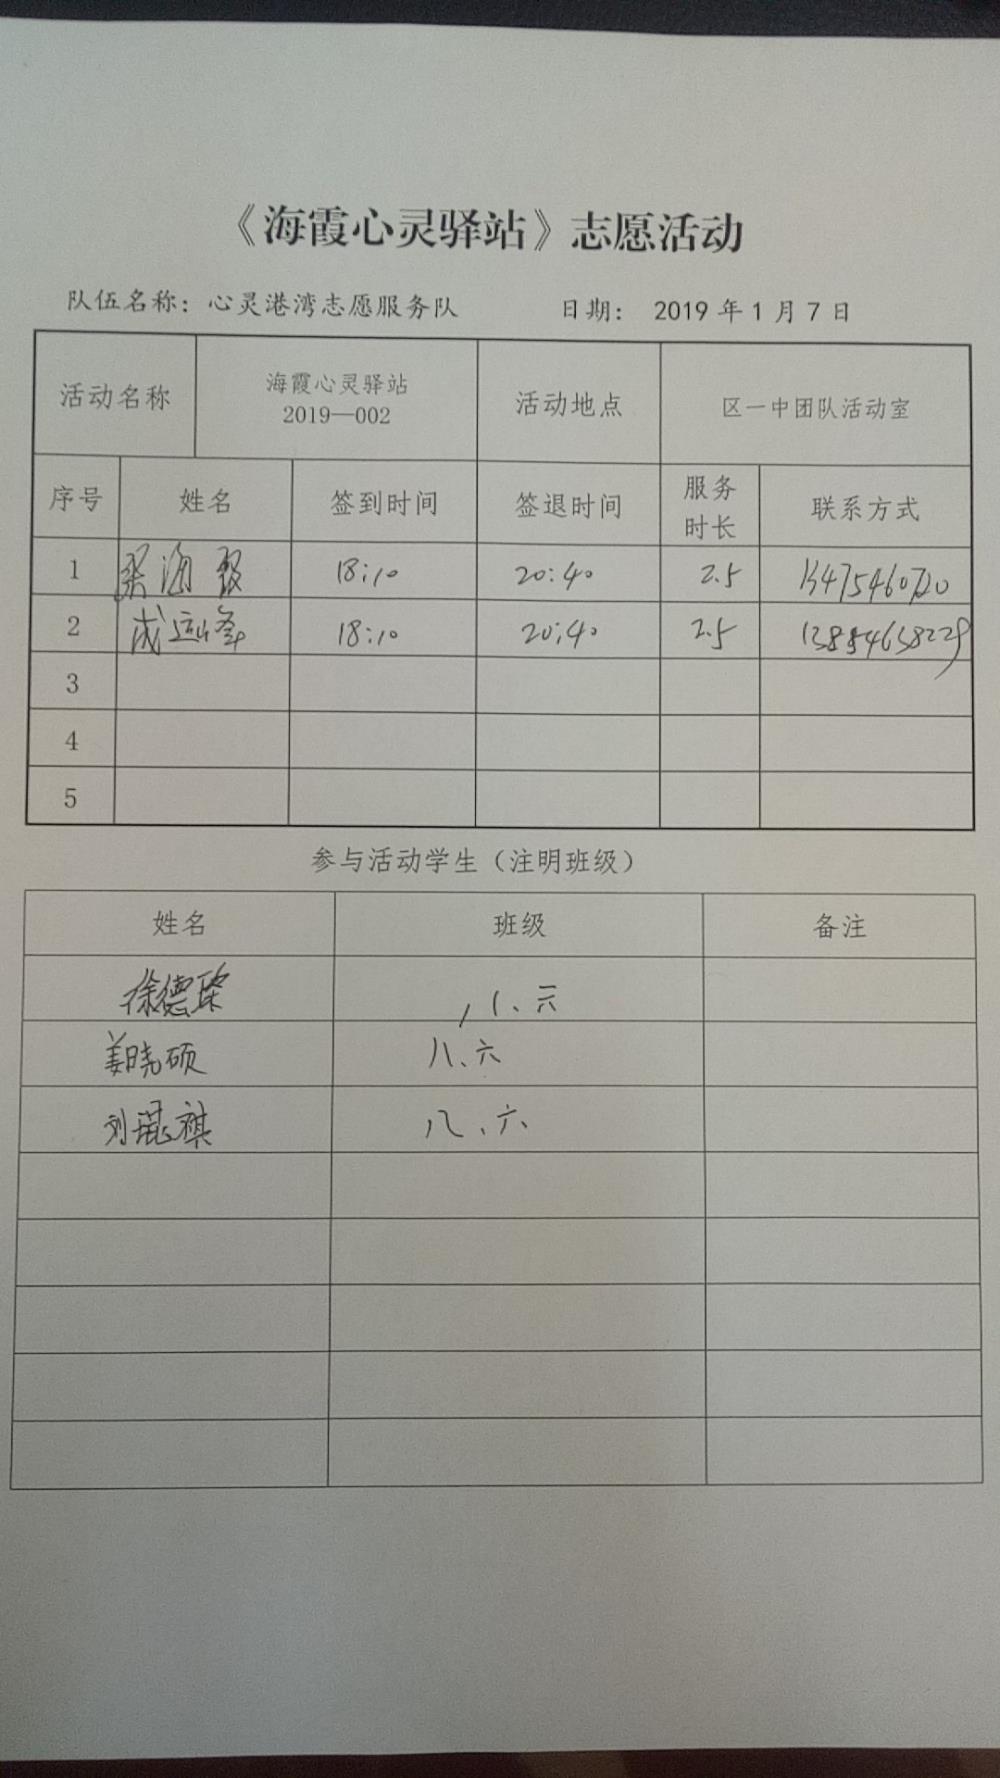 《海霞心灵驿站》志愿活动
队伍名称：心灵港湾志愿服务队 日期： 2019 年 1 月 7 日
活动名称 海霞心灵驿站 2019—002 活动地点 区一中团队活动室
序号 姓名 签到时间 签退时间 服务时长 联系方式
1 梁海霞 18:10 20:40 2.5 13475460720
2 成远峰 18:10 20:40 2.5
3
4
5
参与活动学生（注明班级）
姓名 班级 备注
徐德琛 八、六
姜晓硕 八、六
刘琨祺 八、六